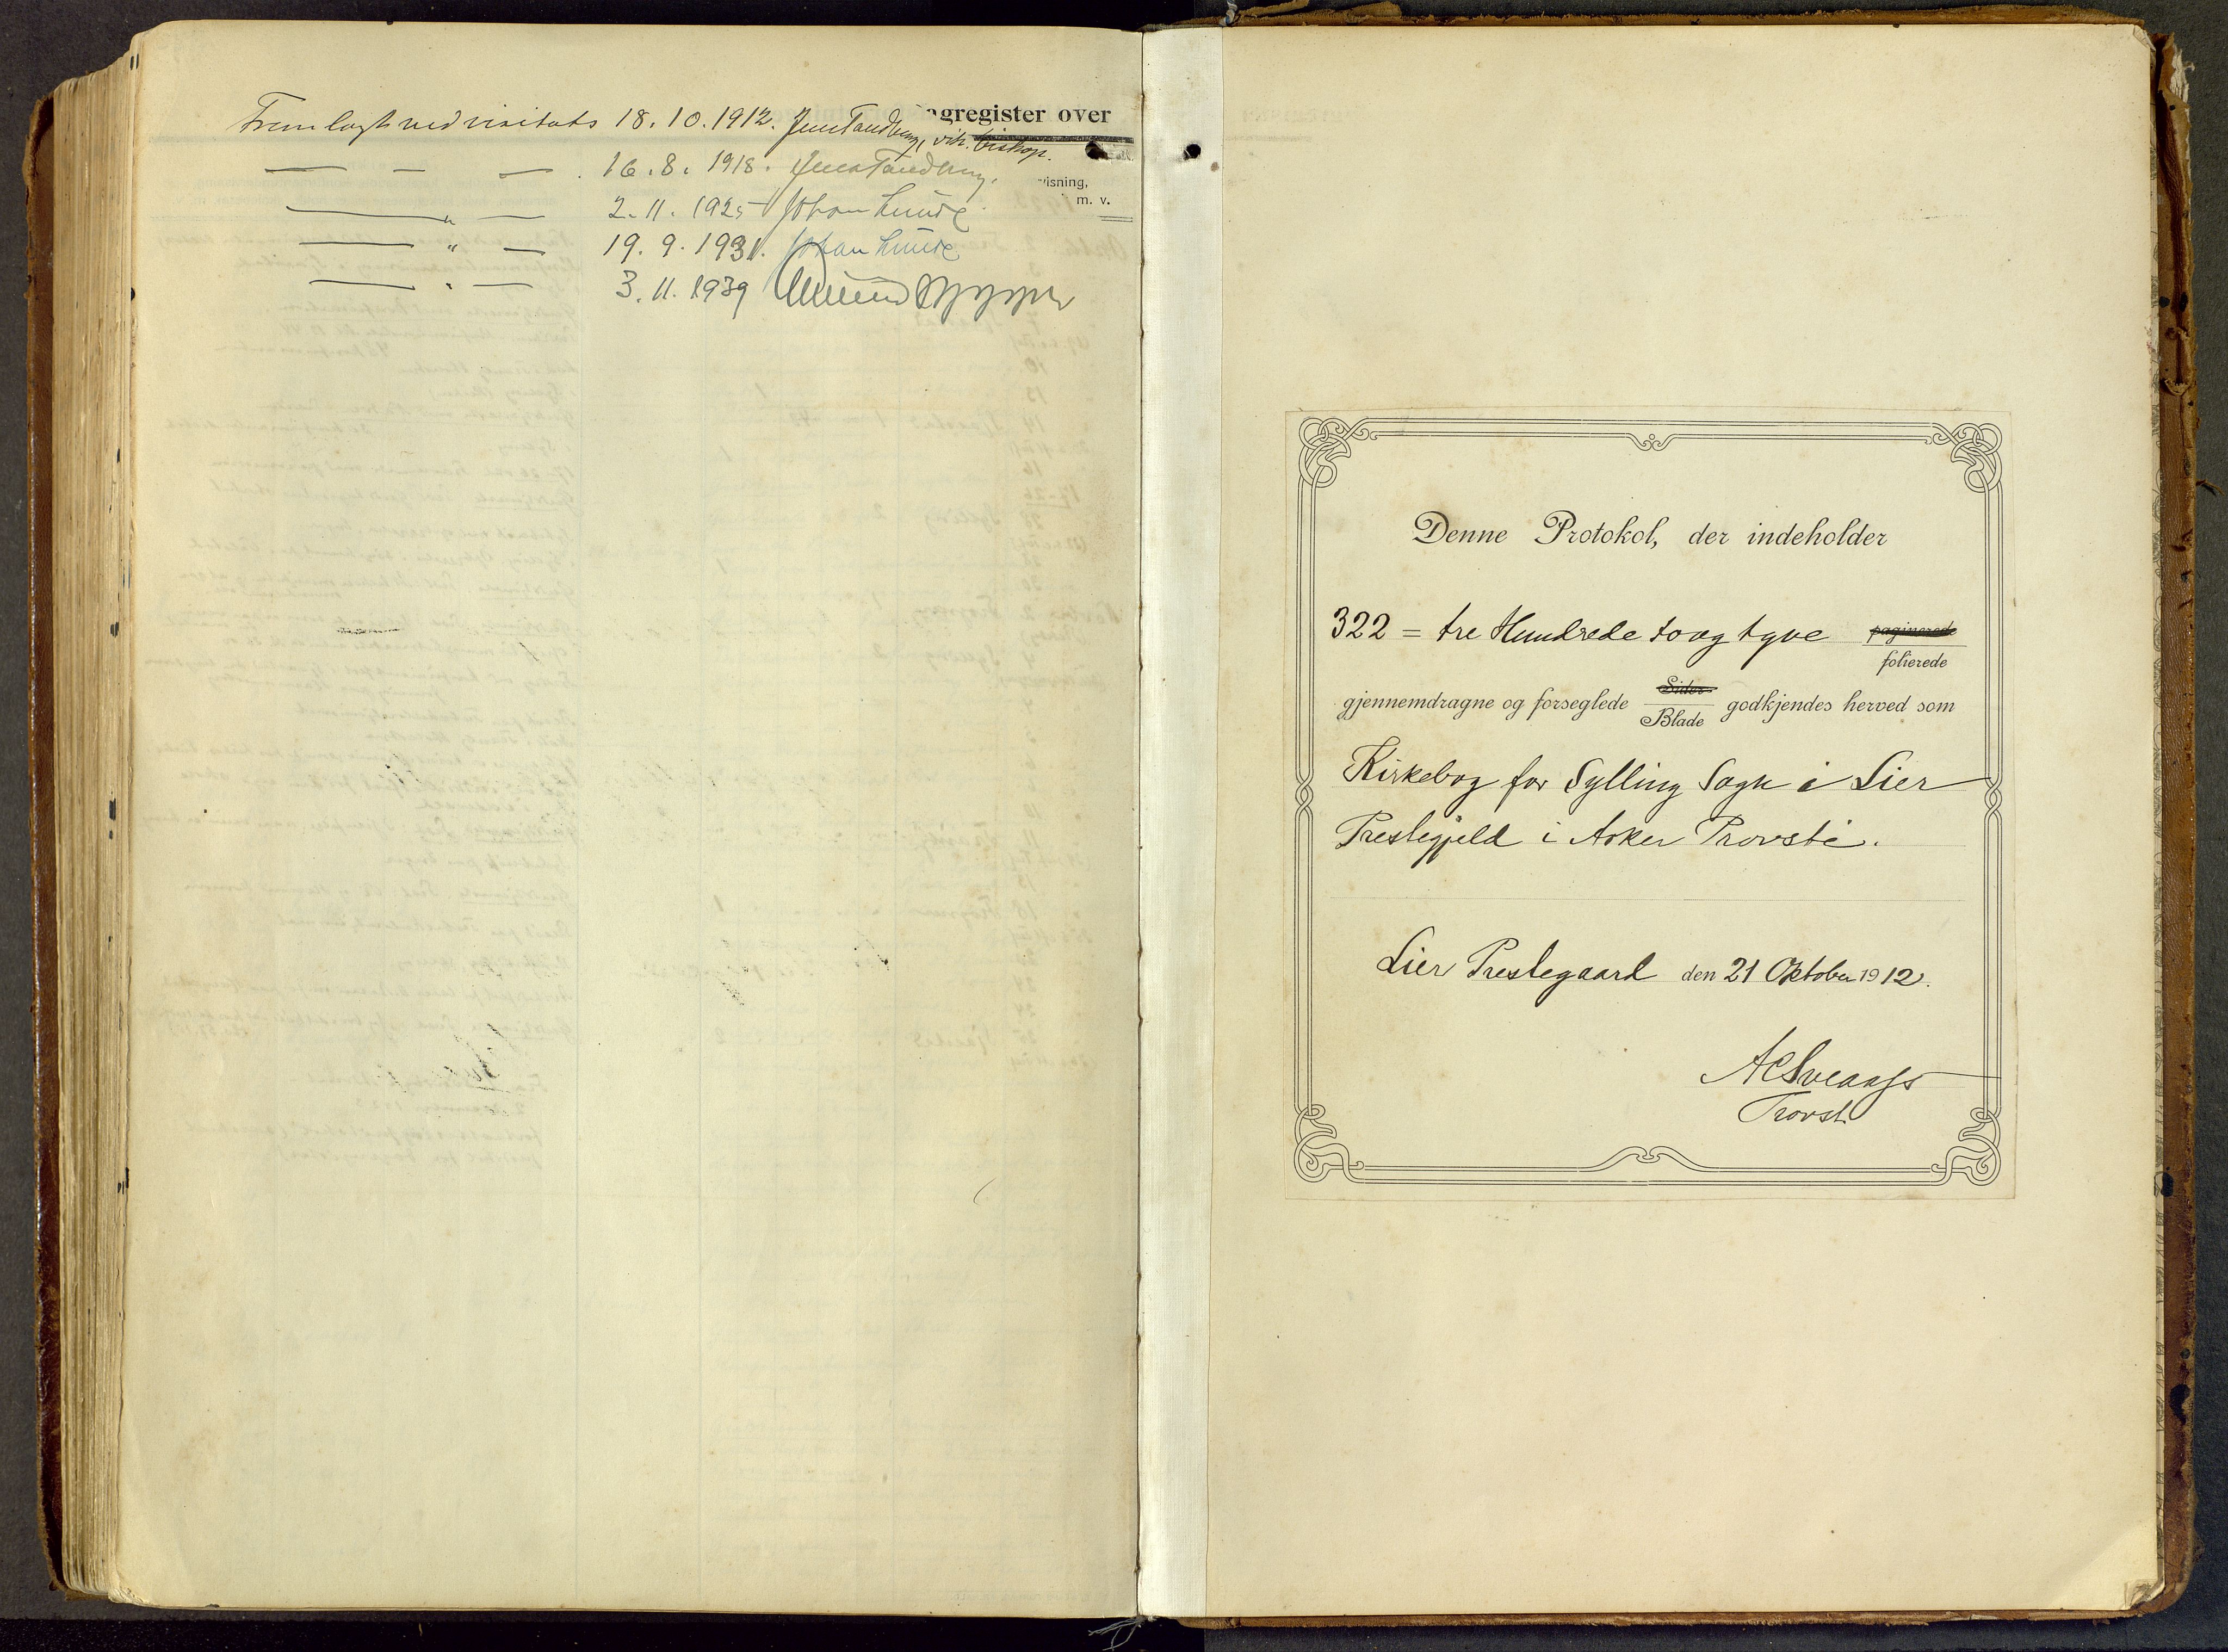 agregister over
Fremlagt ved visitats 18.10.1912. Jens Tandberg, vik. biskop.
— — — . 16.8.1918. Jens Tandberg.
visning,
— " — 2.11.1925 Johan Lunde
m. v.
— " — 19.9.1931. Johan Lunde
— " — 3.11.1939
Denne Protokol, der indeholder
322 = tre Hundrede to og tyve paginerede
folierede
gjennemdragne og forseglede Sider Blade godkjendes herved som
Kirkebog for Sylling Sogn i Lier
Prestegjeld i Asker Provsti.
Lier Prestegaard den 21 Oktober 1912.
Provst